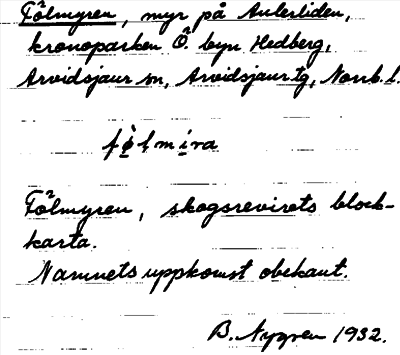 Fölmyren, myr på Aulerliden,
kronoparken Ö. byn Hedberg,
Arvidsjaur sn, Arvidsjaur tg, Norrb. l.
fø̀lmira
Fölmyren, skogsrevirets block-
karta.
Namnets uppkomst obekant.
B. Nygren 1932.